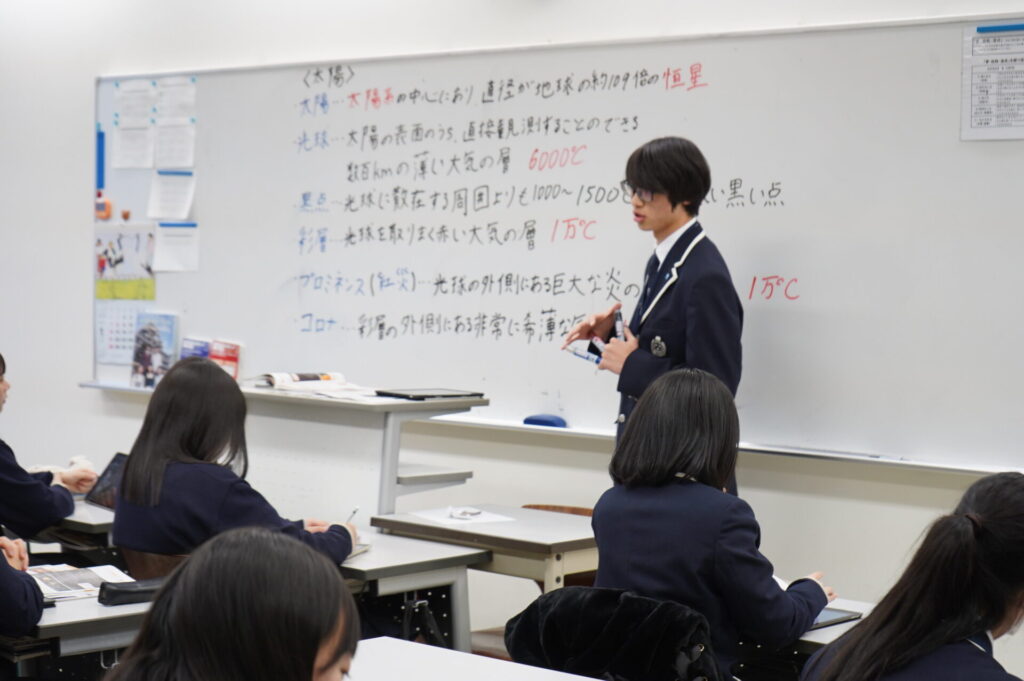 〈太陽〉
・太陽…太陽系の中心にあり 直径が地球の約109倍の恒星
・光球…太陽の表面のうち、直接観測することのできる
数百kmの薄い大気の層 6000℃
・黒点…光球に散在する周囲よりも1000〜1500 い黒い点
・彩層…光球を取りまく赤い大気の層 1万℃
・プロミネンス(紅炎)…光球の外側にある巨大な炎の 1万℃
・コロナ…彩層の外側にある非常に希薄な